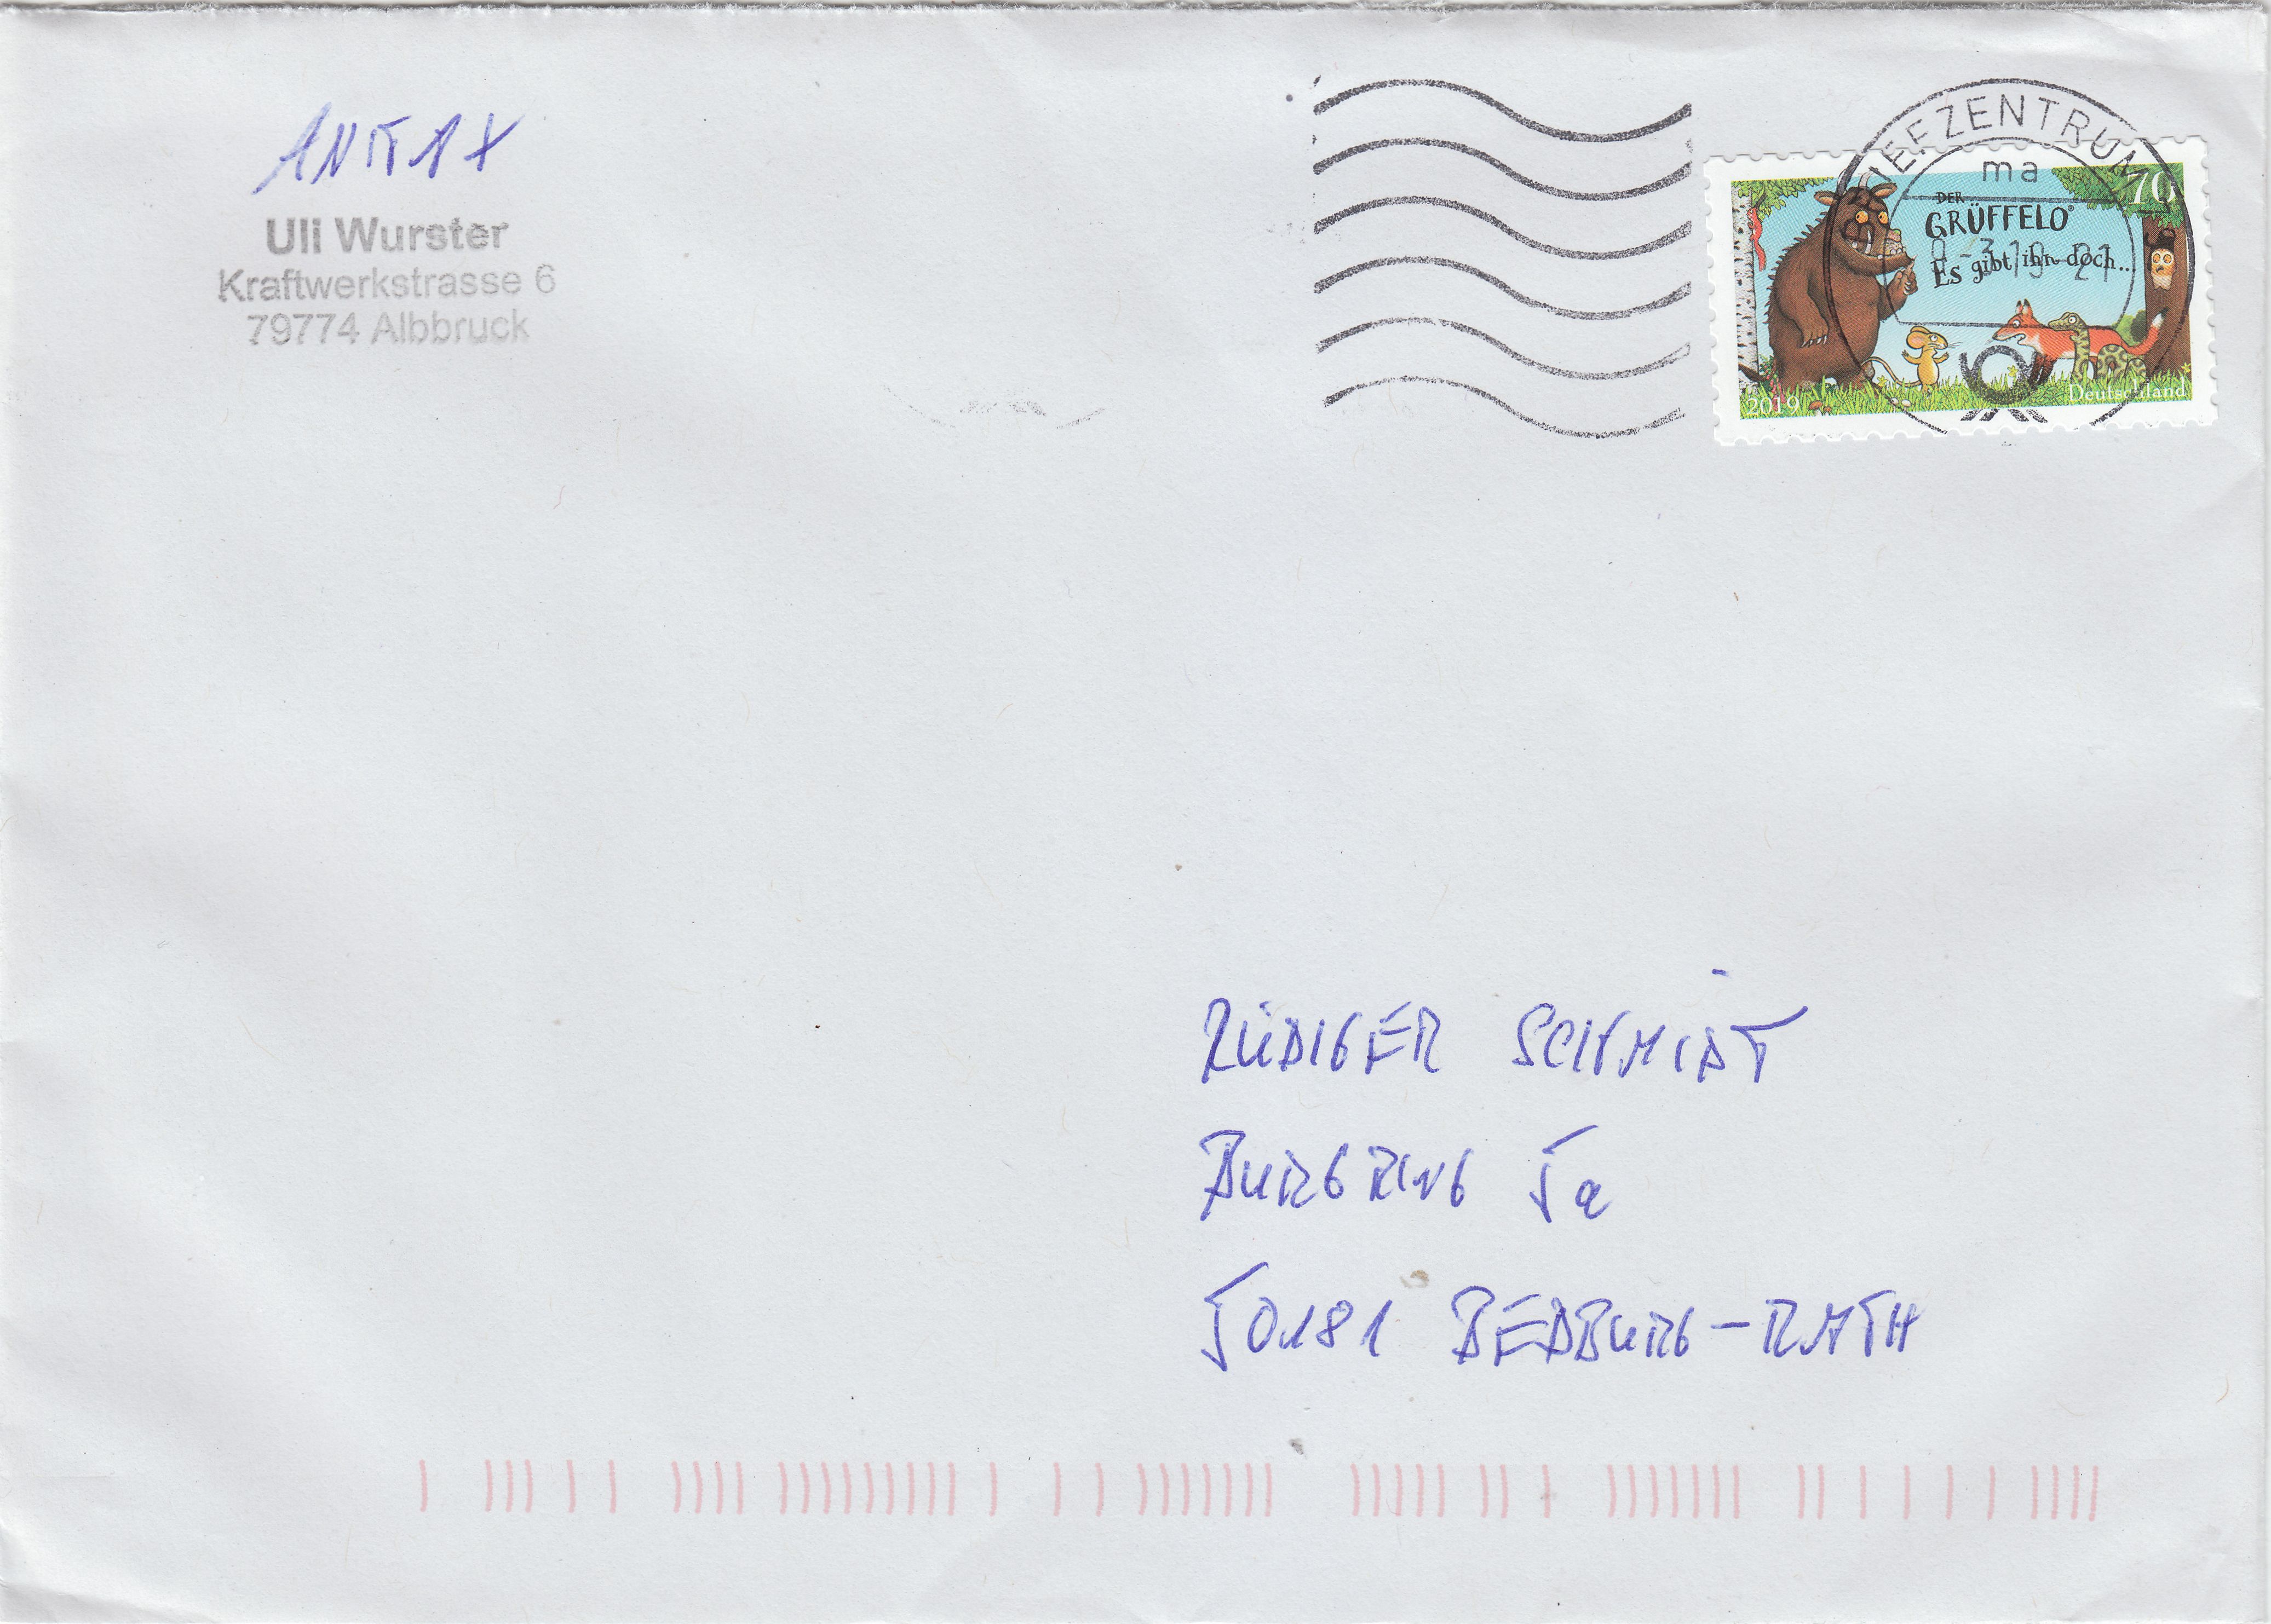 ANTAX
Uli Wurster
Kraftwerkstrasse 6
79774 Albbruck
BRIEFZENTRUM
ma
70
DER
GRÜFFELO®
Es gibt ihn doch...
2019
Deutschland
RÜDIGER SCHMIDT
BURGRING 5a
50181 BEDBURG-RATH